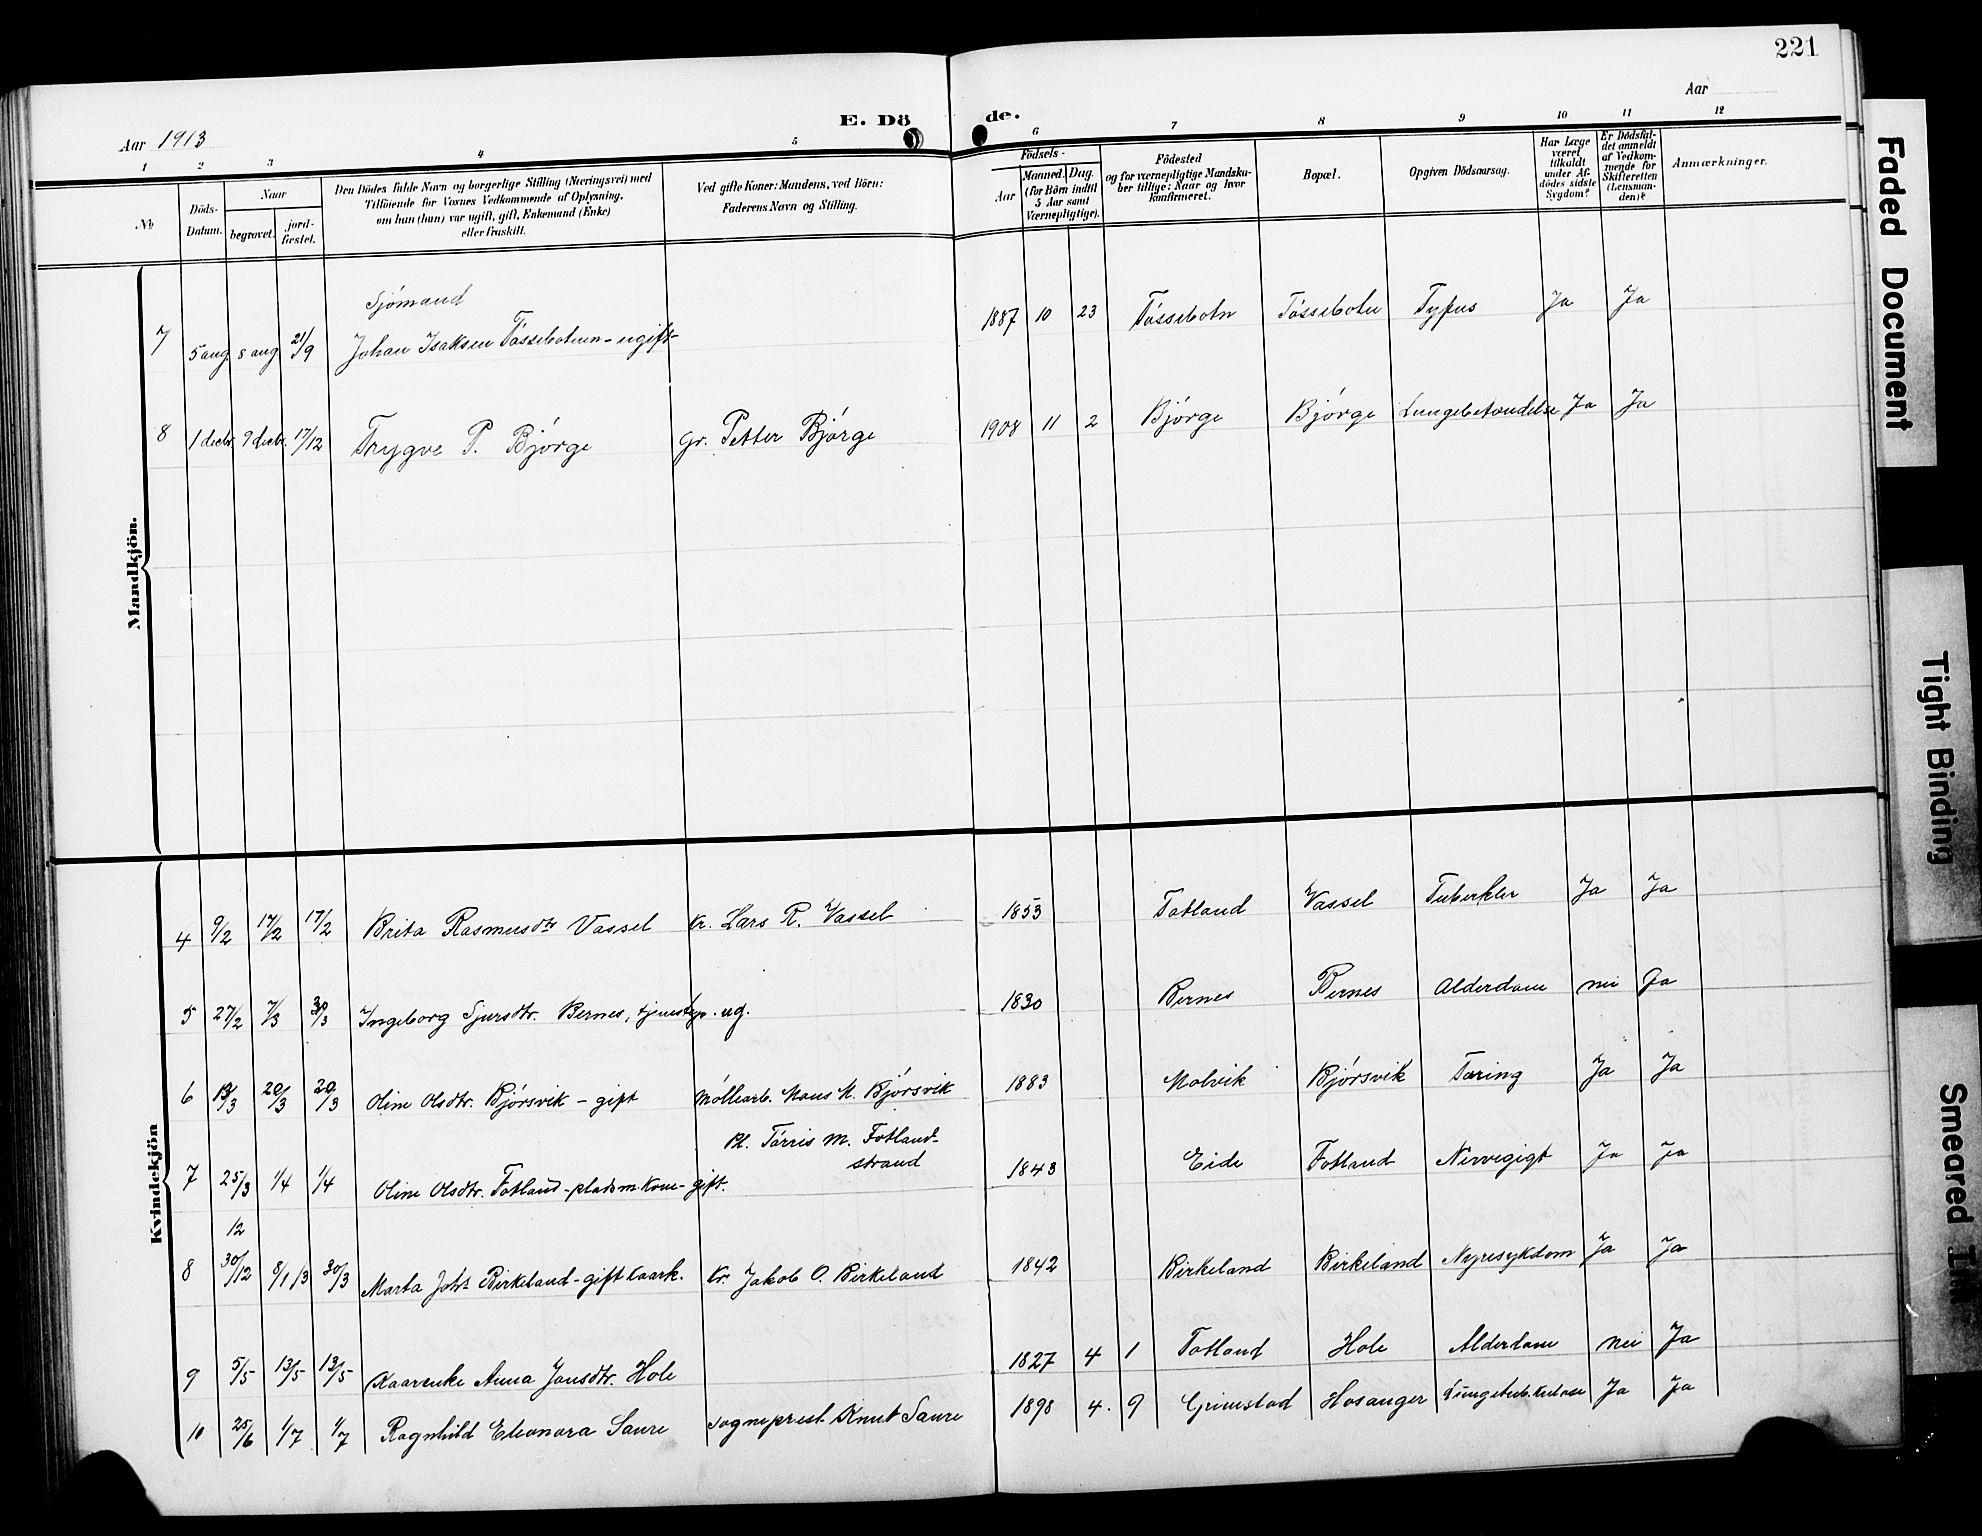 221
E. Dö de.
Aar 1913
Aar
1 2 3 4 5 6 7 8 9 10 11 12
№
Döds-Datum.
Naar
begravet.
jord-fæstet.
Den Dödes fulde Navn og borgerlige Stilling (Næringsvei) med
Tilföiende for Voxnes Vedkommende af Oplysning,
om han (hun) var ugift, gift, Enkemand (Enke)
eller fraskilt.
Ved gifte Koner: Mandens, ved Börn:
Faderens Navn og Stilling.
Födsels-
Aar
Maaned. Dag.
(for Börn indtil
5 Aar samt
Værnepligtige).
Födested
og for værnepligtige Mandska-
ber tillige: Naar og hvor
konfirmeret.
Bopæl.
Opgiven Dödsaarsag.
Har Læge
været
tilkaldt
under Af-
dödes sidste
Sygdom?
Er Dödsfal-
det anmeldt
af Vedkom-
mende for
Skifteretten
(Lensman-
den)?
Anmærkninger.
Mandkjön.
Sjömand
7 5 aug. 8 aug 21/9 Johan Isaksen Tössebotnen - ugift - 1887 10 23 Tössebotn Tössebotn Tyfus Ja Ja
8 1 decbr. 9 decbr. 17/12 Trygve P. Bjørge Gr. Petter Bjørge 1908 11 2 Bjørge Bjørge Lungebetændelse Ja Ja
Kvindekjön
4 9/2 17/2 17/2 Brita Rasmusdtr Vassel Kr. Lars R. Vassel 1853 Totland Vassel Tuberkler Ja Ja
5 27/2 7/3 30/3 Ingeborg Sjursdtr. Bernes, tjenstep. ug. 1830 Bernes Bernes Alderdom nei Ja
6 13/3 20/3 20/3 Oline Olsdtr. Bjørsvik - gift Møllearb. Mons M. Bjørsvik 1883 Molvik Bjørsvik Tæring Ja Ja
Pl. Törris M. Fotland-
strand
7 25/3 1/4 1/4 Oline Olsdtr. Fotland - pladsm. Kone - gift. 1843 Eide Fotland Nervegigt Ja Ja
12
8 30/12 8/1 13 30/3 Marta Johs Birkeland - gift kaark. Kr. Jakob O. Birkeland 1842 Birkeland Birkeland Nyresykdom Ja Ja
9 5/5 13/5 13/5 Kaarenke Anna Jonsdtr. Hole 1827 4 1 Totland Hole Alderdom nei Ja
10 25/6 1/7 1/7 Ragnhild Eleonora Saure Sogneprest Knut Saure 1898 4. 9 Grimstad Hosanger Lungetuberkulose Ja Ja
Faded Document
Tight Binding
Smeared Ink